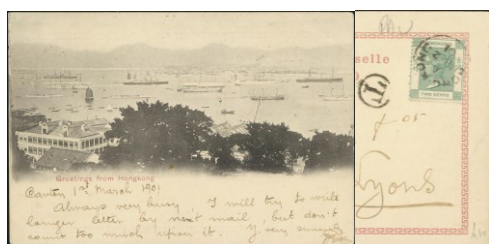 Greetings from Hongkong
Canton 1st March 1901
Always very busy, I will try to write
longer letter by next mail, but don't
count too much upon it. Y very sincerely
selle
T
TWO CENTS
Lyons